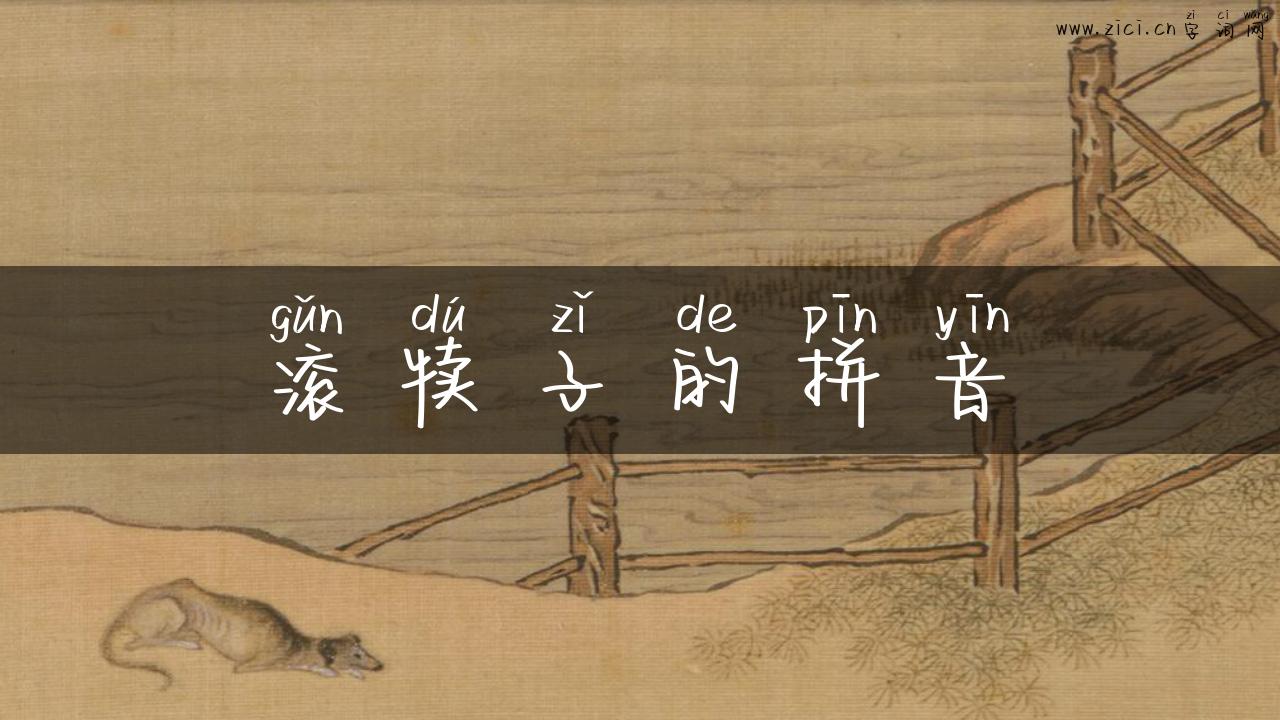 zì cí wǎng
www.zici.cn 字词网
gǔn dú zǐ de pīn yīn
滚犊子的拼音